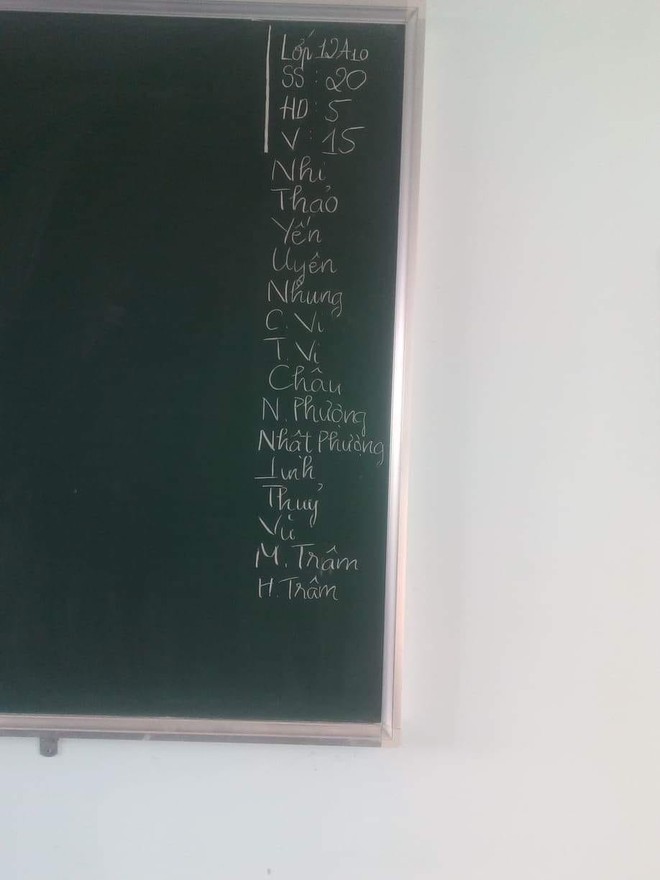 Lớp 12A10
SS : 20
HD : 5
V : 15
Nhi
Thảo
Yến
Uyên
Nhung
C. Vi
T. Vi
Châu
N. Phượng
Nhất Phượng
Thuỷ
M. Trâm
H. Trâm